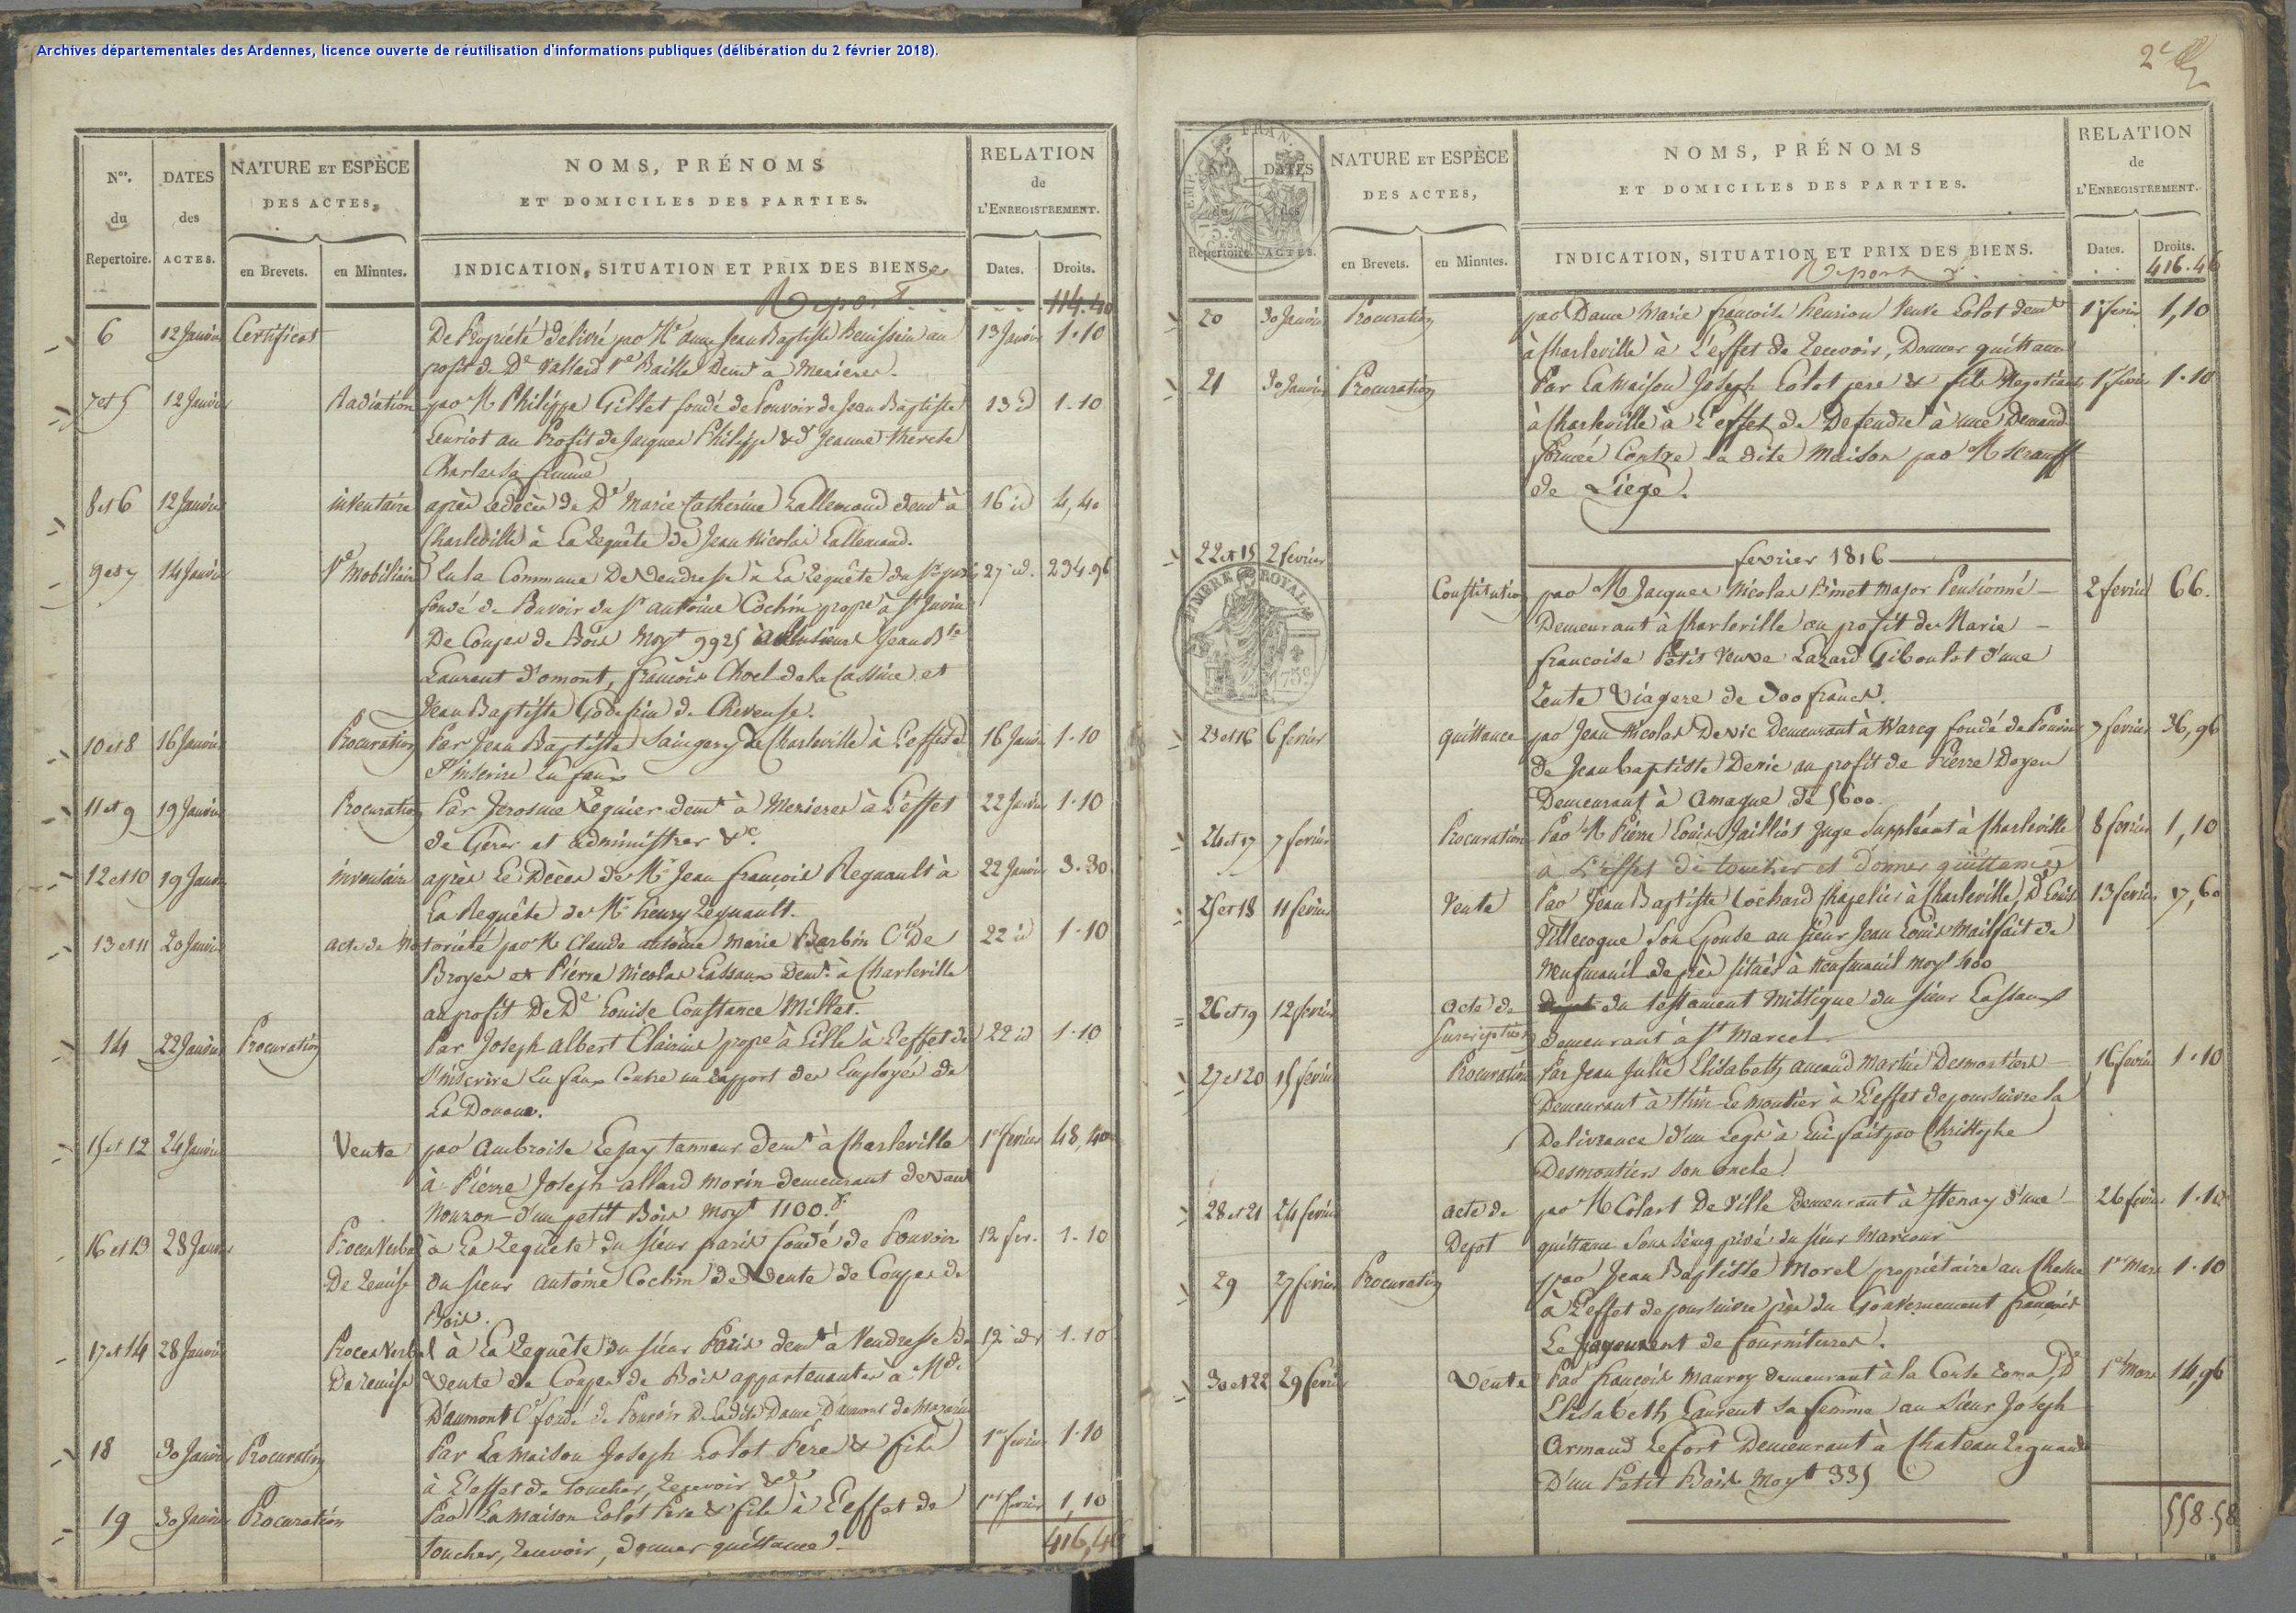 Archives départementales des Ardennes, licence ouverte de réutilisation d'informations publiques (délibération du 2 février 2018).
Nos. du Repertoire.
DATES des ACTES.
NATURE ET ESPÈCE DES ACTES,
en Brevets.
en Minutes.
NOMS, PRÉNOMS
ET DOMICILES DES PARTIES.
INDICATION, SITUATION ET PRIX DES BIENS.
RELATION de L'ENREGISTREMENT.
Dates.
Droits.
Report 114.40
6 12 Janvier Certificat De Propriété délivré par Me Jean Baptiste au 13 Janvier 1.10
profit de De Vallard Ve Baille demt à Mezieres.
7 et 5 12 Janvier Radiation par M Philippe Gillet fondé de Pouvoir de Jean Baptiste 13 id 1.10
Leuriot au Profit de Jacques Philippe & d Jeanne therese
Charles sa femme
8 et 6 12 Janvier inventaire après le décès de De Marie Catherine Lallemand demt à 16 id 4,40
Charleville à La Requête de Jean Nicolas Lallemand.
9 et 7 14 Janvier Ve Mobiliaire En la Commune De Vendresse à La Requête du Sr paris 27 id. 234.96
fondé de Pouvoir du Sr antoine Cochin propre à St Juvin
De Coupes de Bois Moyt 9925 à plusieurs Jean Bte
Laurent d'omont, françois Choel de la Cassine et
Jean Baptiste Godefrin de Cheveuse.
10 et 8 16 Janvier Procuration Par Jean Baptiste Saingery de Charleville à L'effet de 16 Janvier 1.10
S'inscrire En faux
11 et 9 19 Janvier Procuration Par Jerosme Lequier demt à Mezieres à L'effet 22 Janvier 1.10
de Gérer et administrer &c.
12 et 10 19 Janvier inventaire après le Décès de Mr Jean françois Regnault à 22 Janvier 3.30
La Requête de Mr henry Regnault.
13 et 11 20 Janvier acte de Notoriété par M Claude antoine Marie Barbin Cte De 22 id 1.10
Broyes et Pierre Nicolas Lassaux demt à Charleville
au profit De De Louise Constance Millet.
14 22 Janvier Procuration Par Joseph albert Clairine propre à Lille à L'effet de 22 id 1.10
S'inscrire En faux Contre un rapport des Employés de
La Douane.
15 et 12 24 Janvier Vente par Ambroise Lejay tanneur demt à Charleville 1er fevrier 48,40
à Pierre Joseph allard Morin demeurant devant
Nouzon d'un petit Bois Moyt 1100.f
16 et 13 28 Janvier Proces Verbal à La Requête du sieur paris fondé de Pouvoir 12 fer. 1.10
De remise du sieur antoine Cochin de Vente de Coupes de
Bois.
17 et 14 28 Janvier Proces Verbal à La Requête du sieur Paris demt à Vendresse de 12 id 1.10
De remise Vente de Coupes de Bois appartenantes à Md.
D'aumont Ce fondé de Pouvoir De Ladite Dame D'aumont de Mazarin
18 30 Janvier Procuration Par La Maison Joseph Lolot Pere & fils 1er fevrier 1.10
à L'effet de toucher, recevoir &c
19 30 Janvier Procuration Par La Maison Lolot Pere & fils à L'effet de 1er fevrier 1,10
toucher, recevoir, donner quittance.
416,46
2e
Nos. du Repertoire.
DATES des ACTES.
NATURE ET ESPÈCE DES ACTES,
en Brevets.
en Minntes.
NOMS, PRÉNOMS
ET DOMICILES DES PARTIES.
INDICATION, SITUATION ET PRIX DES BIENS.
RELATION de L'ENREGISTREMENT.
Dates.
Droits.
Report 416.46
20 30 Janvier Procuration par Dame Marie francoise henrion Veuve Lolot demt 1er fevrier 1,10
à Charleville à L'effet de recevoir, Donner quittance
21 30 Janvier Procuration Par La Maison Joseph Lolot pere & fils Negotians 1er fevrier 1.10
à Charleville à L'effet de Defendre à une Demande
formée Contre la dite Maison par M
de Liege.
fevrier 1816
22 et 15 2 fevrier
TIMBRE ROYAL
75c
Constitution par M Jacques Nicolas Binet Major Pensionné 2 fevrier 66.
Demeurant à Charleville au profit de Marie
francoise Petit Veuve Lazard Giboulot d'une
rente Viagere de 300 francs.
23 et 16 6 fevrier quittance par Jean Nicolas Devic Demeurant à Warcq fondé de Pouvoir 7 fevrier 36,96
de Jean baptiste Devic au profit de Pierre Doyen
Demeurant à Amagne de 5600.
24 et 17 7 fevrier Procuration Par M Pierre Louis Jailliot Juge Suppléant à Charleville 8 fevrier 1,10
à L'effet de toucher et donner quittance
25 et 18 11 fevrier Vente Par Jean Baptiste Cochard Chapelier à Charleville, De Louise 13 fevrier 17,60
Villecoque Son Epouse au sieur Jean Louis Mailfait de
Neufmanil de près situés à Neufmanil moyt 400
26 et 19 12 fevrier acte de du testament Mistique du sieur Lassaux
Suscription demeurant à St Marcel
27 et 20 15 fevrier Procuration Par Jean Julie Elisabeth amand Martin Desmoutiers 16 fevrier 1.10
Demeurant à thin-le moutier à L'effet de poursuivre la
Delivrance d'un Legs à Lui fait par Christophe
Desmoutiers son oncle.
28 et 21 24 fevrier acte de par M Colart De Ville Demeurant à Stenay d'une 26 fevrier 1.10
Depot quittance Sous seing privé du sieur Marcour
29 27 fevrier Procuration par Jean Baptiste Morel propriétaire au Chesne 1er Mars 1.10
à L'effet de poursuivre près du Gouvernement français
Le payement de fournitures.
30 et 22 29 fevrier Vente Par françois Mauroy demeurant à la Cense roma, De 1er Mars 14,96
Elisabeth Laurent sa femme au sieur Joseph
Armand Lefort Demeurant à Chateau regnault
D'un Petit Bois Moyt 335
558.58